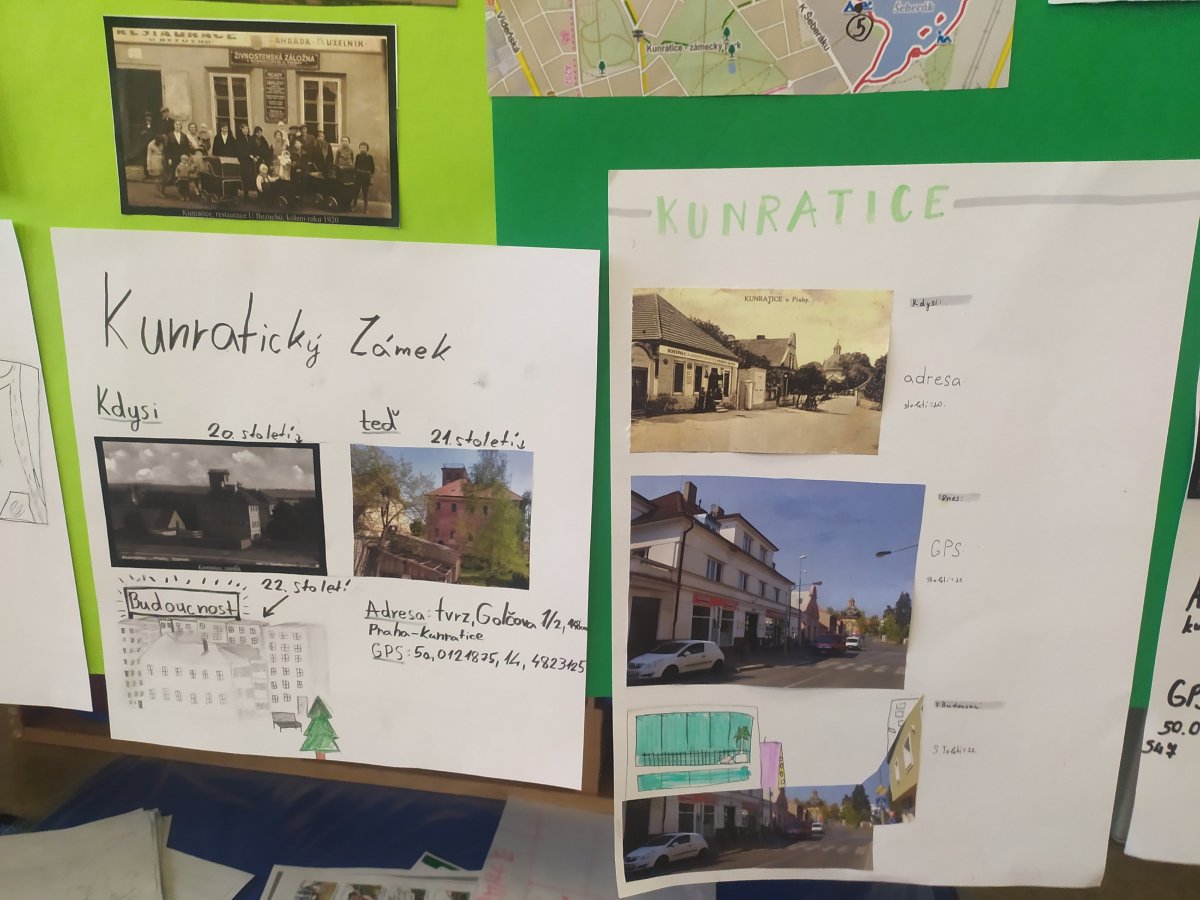 RESTAURACE
ZAHRADA KUZELNIK
ŽIVNOSTENSKÁ ZÁLOŽNA
Kunratice, restaurace U Bezuchů, kolem roku 1920
Vídeňská
Kunratice - zámecký park
K Šeberáku
Šeberák
5
Kunratický Zámek
Kdysi
teď
20. století
21. století
Kunratice zámek
22. století
Budoucnost
Adresa: tvrz, Golčova 1/2,
Praha-Kunratice
GPS: 50,0121875, 14,4823125
KUNRATICE
KUNRATICE u Prahy
Kdysi:
adresa:
století:20.
Dnes:
GPS:
století:21.
V Budoucnu:
GPS
50.0
547